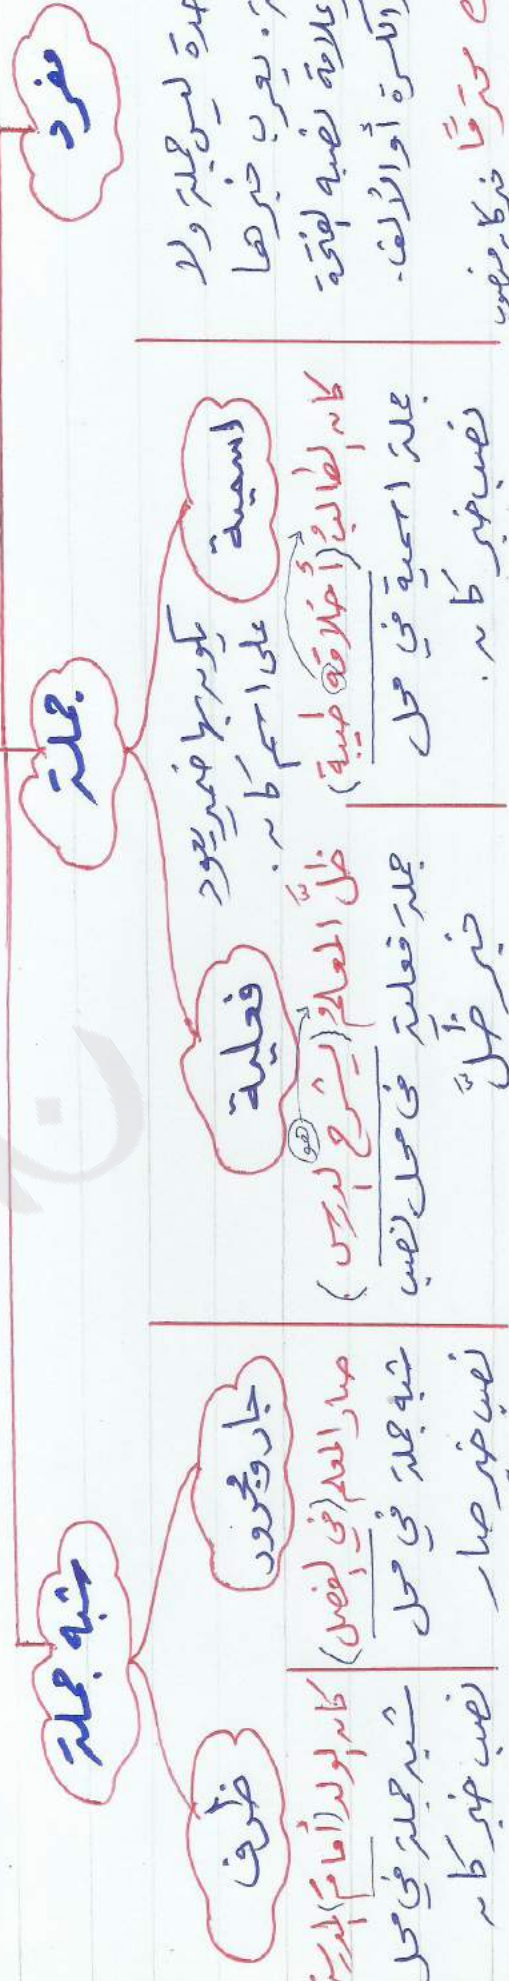 مفرد
حدة ليس جملة ولا
يعرب خبرها
علامة نصبه الفتحة
الكسرة أو الألف.
محترمًا
خبر كان منصوب
جملة
يكون بها ضمير يعود
على اسم كان.
اسمية
كان الطالبُ (أخلاقه طيبة)
جملة اسمية في محل
نصب خبر كان.
فعلية
ظلَّ المعلمُ (يشرح الدرس)
هو
جملة فعلية في محل نصب
خبر ظلَّ
شبه جملة
جار ومجرور
صار المعلم (في الفصل)
شبه جملة في محل
نصب خبر صار
ظرف
كان الولد (أمامَ)
شبه جملة في محل
نصب خبر كان